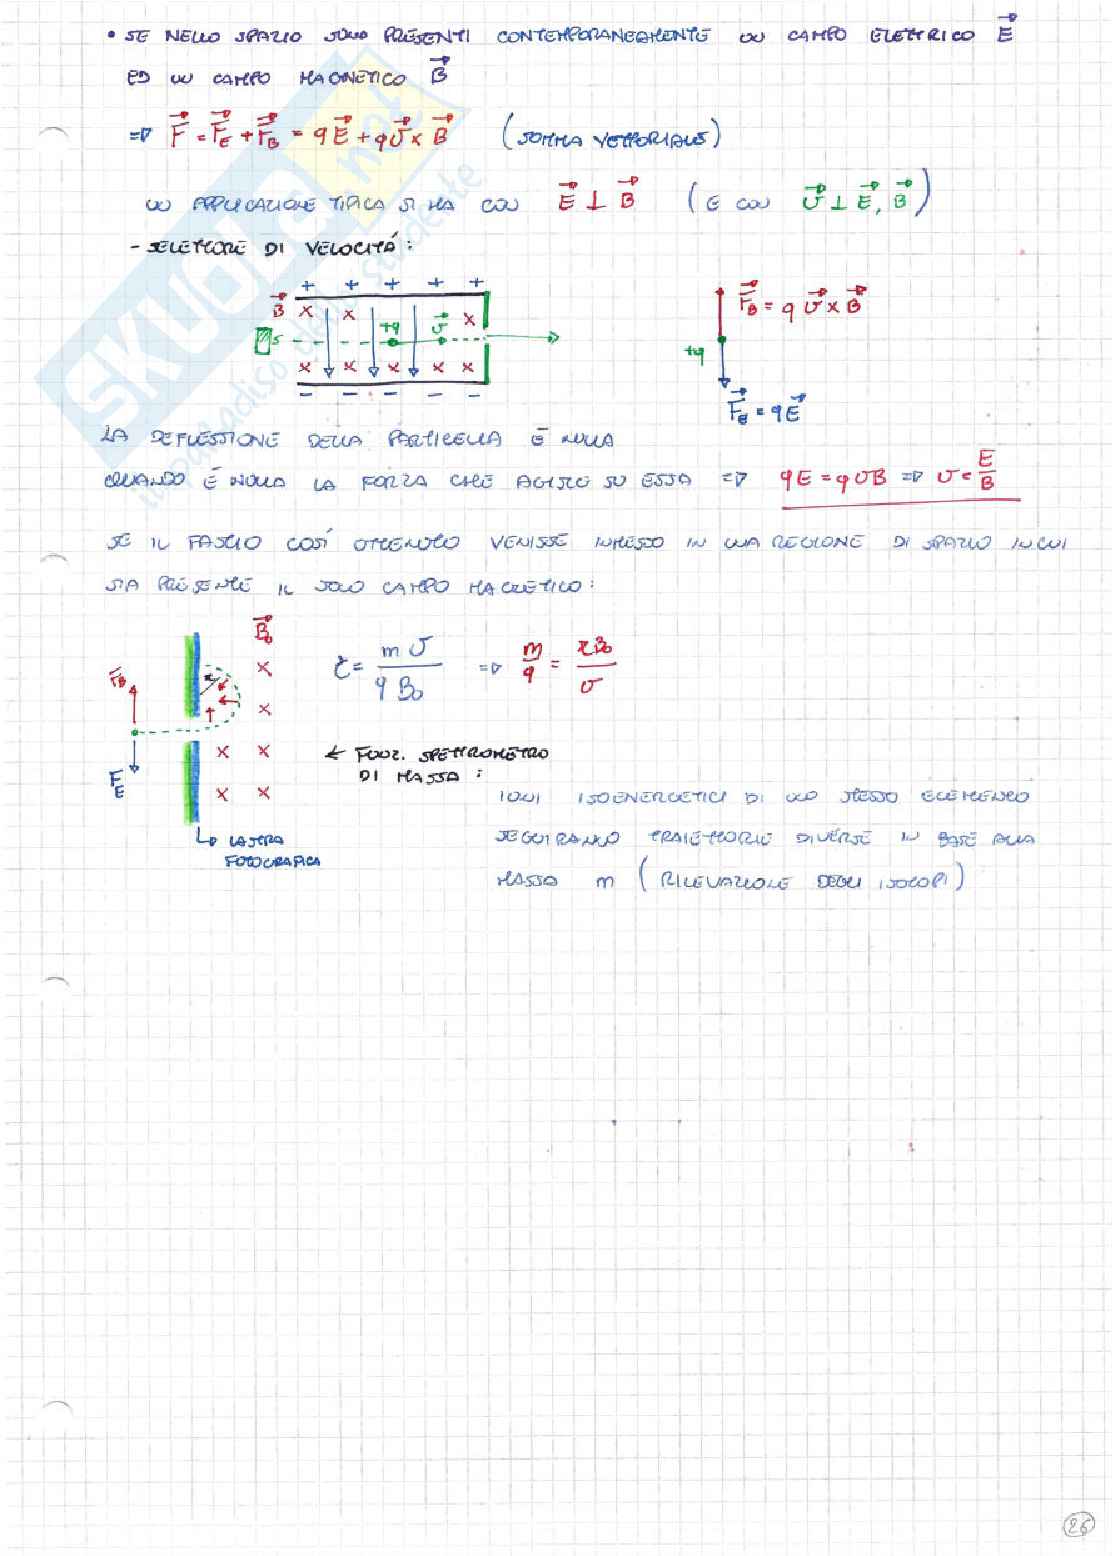 • SE NELLO SPAZIO SONO PRESENTI CONTEMPORANEAMENTE UN CAMPO ELETTRICO E⃗
ED UN CAMPO MAGNETICO B⃗
=> F⃗ = F⃗E + F⃗B = qE⃗ + qv⃗ x B⃗ (SOMMA VETTORIALE)
UN APPLICAZIONE TIPICA SI HA CON E⃗ ⊥ B⃗ (E CON v⃗ ⊥ E⃗, B⃗)
- SELETTORE DI VELOCITÁ:
+ + + + +
B⃗ x x x
S +q v⃗
x x x x x
- - - - -
F⃗B = q v⃗ x B⃗
+q
F⃗E = qE⃗
LA DEFLESSIONE DELLA PARTICELLA É NULLA
QUANDO É NULLA LA FORZA CHE AGISCE SU ESSA => qE = qvB => v = E/B
SE IL FASCIO COSÍ OTTENUTO VENISSE IMMESSO IN UNA REGIONE DI SPAZIO IN CUI
SIA PRESENTE IL SOLO CAMPO MAGNETICO:
B⃗0
F⃗B
x
x
x x
x x
FE
r = mv / qB0 => m/q = rB0/v
← FUNZ. SPETTROMETRO
DI MASSA:
LASTRA
FOTOGRAFICA
IONI ISOENERGETICI DI UNO STESSO ELEMENTO
SEGUIRANNO TRAIETTORIE DIVERSE IN BASE ALLA
MASSA m (RILEVAZIONE DEGLI ISOTOPI)
26
SKUOLA.net
il paradiso dello studente